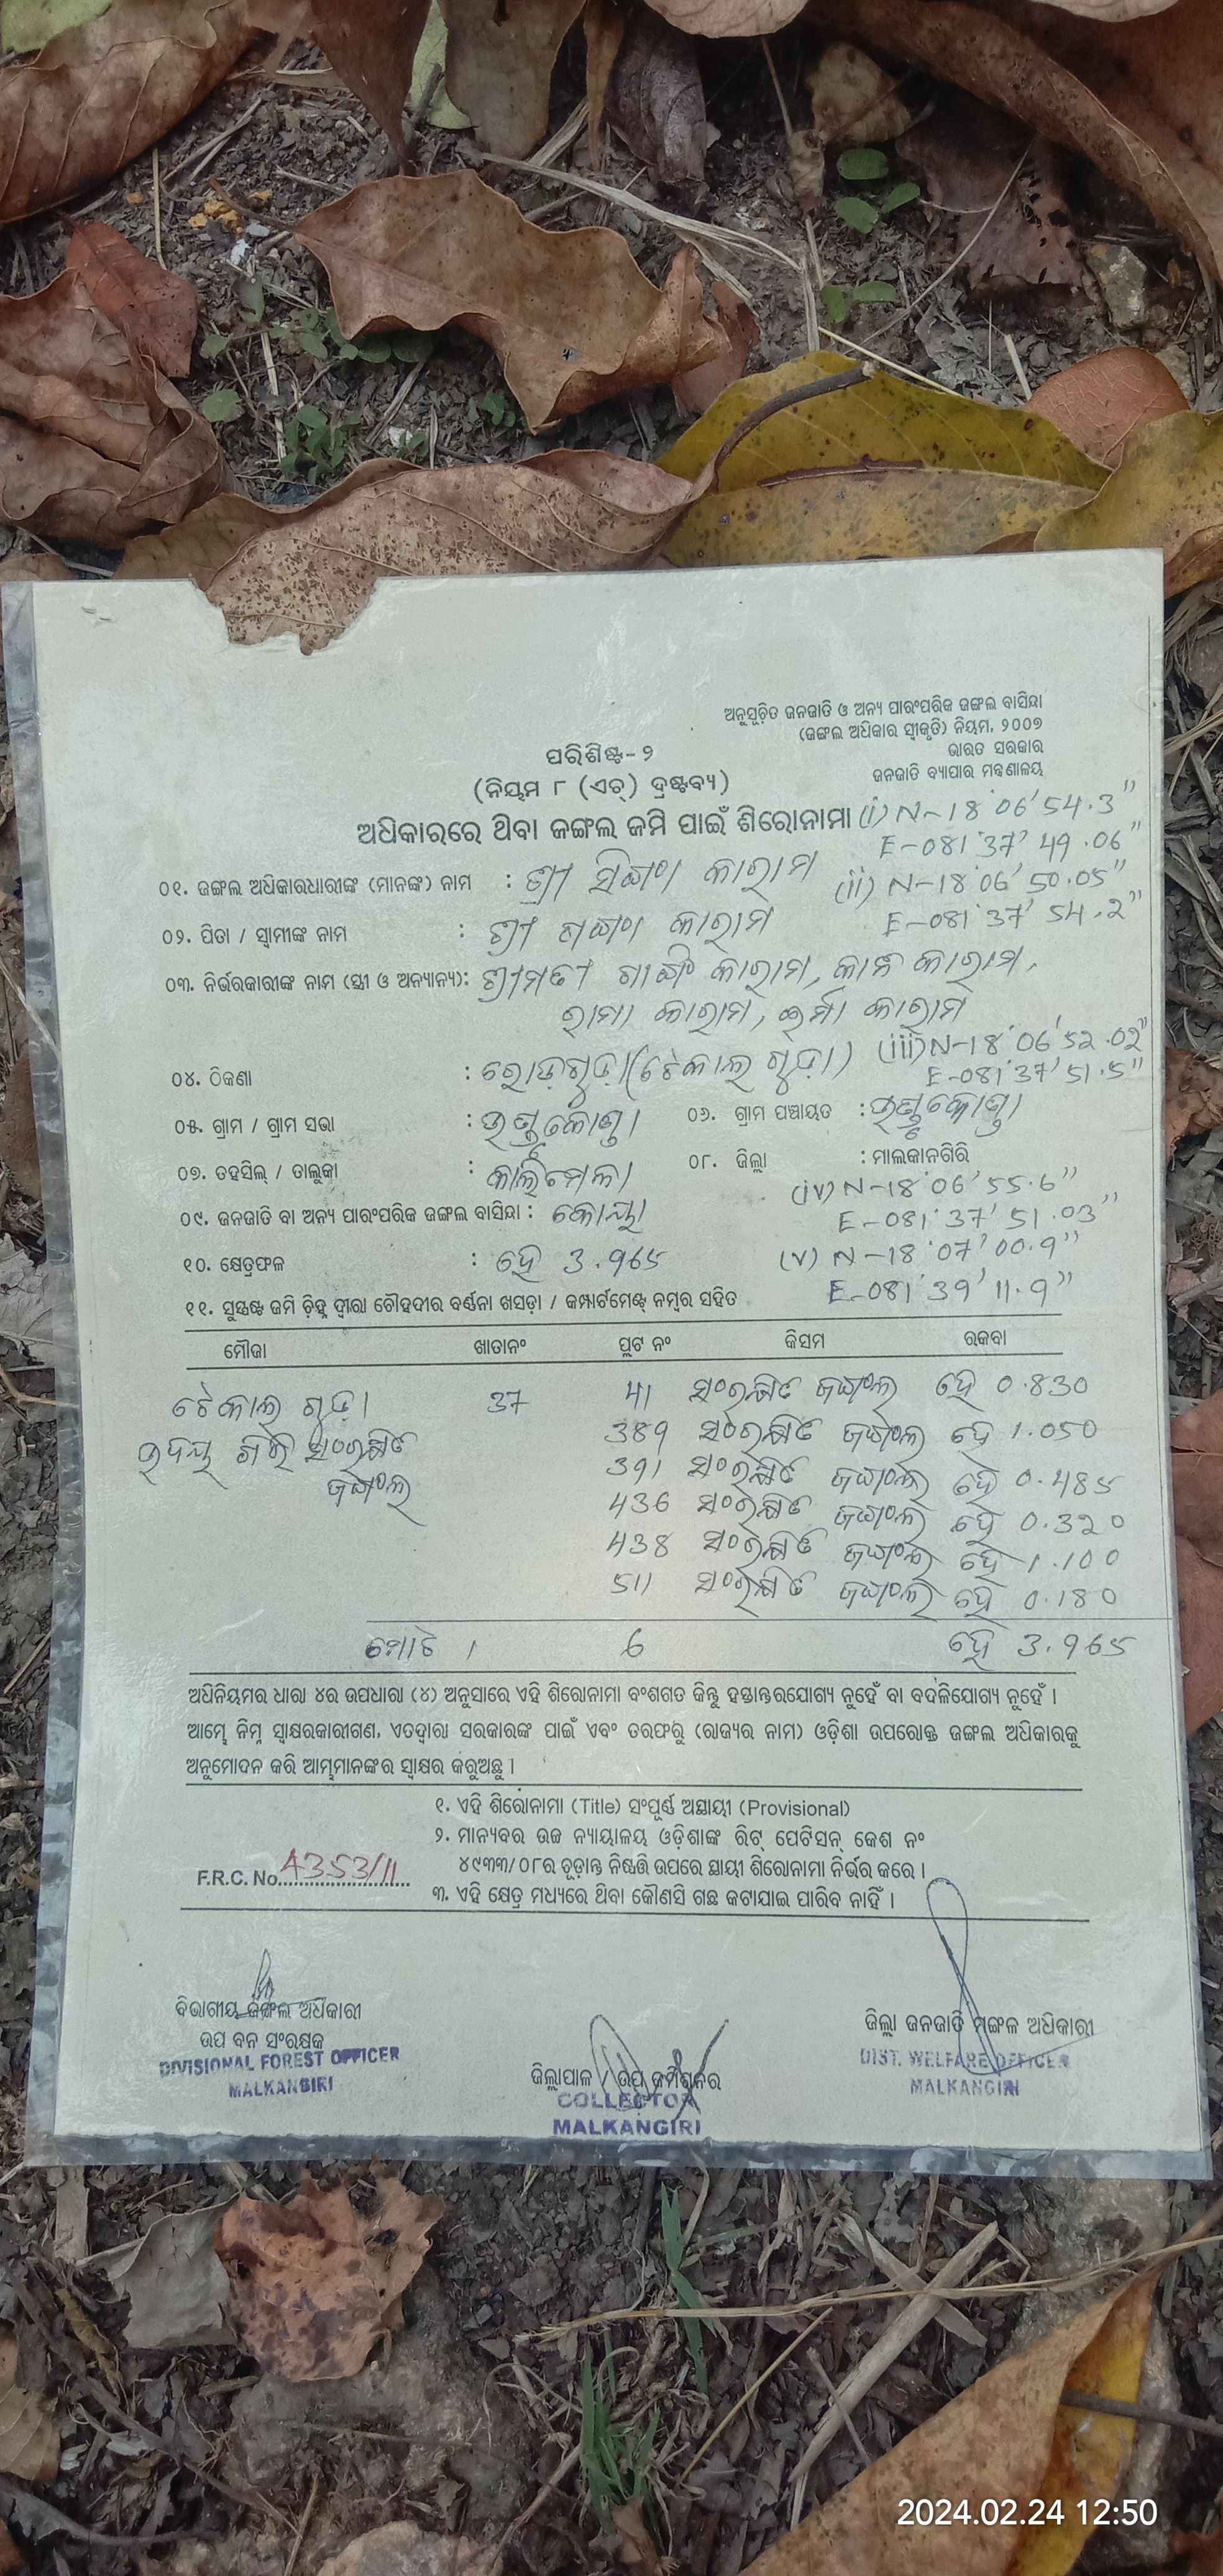 ଅନୁସୂଚିତ ଜନଜାତି ଓ ଅନ୍ୟ ପାରଂପରିକ ଜଙ୍ଗଲ ବାସିନ୍ଦା
(ଜଙ୍ଗଲ ଅଧିକାର ସ୍ୱୀକୃତି) ନିୟମ, ୨୦୦୭
ଭାରତ ସରକାର
ଜନଜାତି ବ୍ୟାପାର ମନ୍ତ୍ରଣାଳୟ
ପରିଶିଷ୍ଟ - ୨
(ନିୟମ ୮ (ଏଚ୍) ଦ୍ରଷ୍ଟବ୍ୟ)
ଅଧିକାରରେ ଥିବା ଜଙ୍ଗଲ ଜମି ପାଇଁ ଶିରୋନାମା
(i) N-18°06'54.3"
E-081°37'49.06"
୦୧. ଜଙ୍ଗଲ ଅଧିକାରଧାରୀଙ୍କ (ମାନଙ୍କ) ନାମ : ଶ୍ରୀ ସିଙ୍ଗା କାରାମ
(ii) N-18°06'50.05"
E-081°37'54.2"
୦୨. ପିତା / ସ୍ୱାମୀଙ୍କ ନାମ : ଶ୍ରୀ ଗଙ୍ଗା କାରାମ
୦୩. ନିର୍ଭରକାରୀଙ୍କ ନାମ (ସ୍ତ୍ରୀ ଓ ଅନ୍ୟାନ୍ୟ) : ଶ୍ରୀମତୀ କାରାମ, କାରାମ,
ରାମା କାରାମ, ଇର୍ମା କାରାମ
(iii) N-18°06'52.02"
E-081°37'51.5"
୦୪. ଠିକଣା : ରୋଡ଼ଗୁଡ଼ା (ଟେକାଲ ଗୁଡ଼ା)
୦୫. ଗ୍ରାମ / ଗ୍ରାମ ସଭା : ଉଣ୍ଡ୍ରୁକୋଣ୍ଡା ୦୬. ଗ୍ରାମ ପଞ୍ଚାୟତ : ଉଣ୍ଡ୍ରୁକୋଣ୍ଡା
୦୭. ତହସିଲ୍ / ତାଲୁକା : କାଲିମେଳା ୦୮. ଜିଲ୍ଲା : ମାଲକାନଗିରି
(iv) N-18°06'55.6"
E-081°37'51.03"
୦୯. ଜନଜାତି ବା ଅନ୍ୟ ପାରଂପରିକ ଜଙ୍ଗଲ ବାସିନ୍ଦା : କୋୟା
(v) N-18°07'00.9"
E-081°39'11.9"
୧୦. କ୍ଷେତ୍ରଫଳ : ହେ 3.965
୧୧. ସୁସ୍ପଷ୍ଟ ଜମି ଚିହ୍ନ ଦ୍ୱାରା ଚୌହଦୀର ବର୍ଣ୍ଣନା ଖସଡ଼ା / କମ୍ପାର୍ଟମେଣ୍ଟ୍ ନମ୍ବର ସହିତ
ମୌଜା ଖାତାନଂ ପ୍ଲଟ ନଂ କିସମ ରକବା
ଟେକାଲ ଗୁଡ଼ା 37 41 ସଂରକ୍ଷିତ ଜଙ୍ଗଲ ହେ 0.830
ଉଦୟ ଗିରି ସଂରକ୍ଷିତ 389 ସଂରକ୍ଷିତ ଜଙ୍ଗଲ ହେ 1.050
ଜଙ୍ଗଲ 391 ସଂରକ୍ଷିତ ଜଙ୍ଗଲ ହେ 0.485
436 ସଂରକ୍ଷିତ ଜଙ୍ଗଲ ହେ 0.320
438 ସଂରକ୍ଷିତ ଜଙ୍ଗଲ ହେ 1.100
511 ସଂରକ୍ଷିତ ଜଙ୍ଗଲ ହେ 0.180
ମୋଟ । 6 ହେ 3.965
ଅଧିନିୟମର ଧାରା ୪ର ଉପଧାରା (୪) ଅନୁସାରେ ଏହି ଶିରୋନାମା ବଂଶଗତ କିନ୍ତୁ ହସ୍ତାନ୍ତରଯୋଗ୍ୟ ନୁହେଁ ବା ବଦଳିଯୋଗ୍ୟ ନୁହେଁ ।
ଆମ୍ଭେ ନିମ୍ନ ସ୍ୱାକ୍ଷରକାରୀଗଣ, ଏତଦ୍ୱାରା ସରକାରଙ୍କ ପାଇଁ ଏବଂ ତରଫରୁ (ରାଜ୍ୟର ନାମ) ଓଡ଼ିଶା ଉପରୋକ୍ତ ଜଙ୍ଗଲ ଅଧିକାରକୁ
ଅନୁମୋଦନ କରି ଆମ୍ଭମାନଙ୍କର ସ୍ୱାକ୍ଷର କରୁଅଛୁ ।
୧. ଏହି ଶିରୋନାମା (Title) ସଂପୂର୍ଣ୍ଣ ଅସ୍ଥାୟୀ (Provisional)
୨. ମାନ୍ୟବର ଉଚ୍ଚ ନ୍ୟାୟାଳୟ ଓଡ଼ିଶାଙ୍କ ରିଟ୍ ପେଟିସନ୍ କେଶ ନଂ
୪୯୩୩/୦୮ର ଚୂଡ଼ାନ୍ତ ନିଷ୍ପତ୍ତି ଉପରେ ସ୍ଥାୟୀ ଶିରୋନାମା ନିର୍ଭର କରେ ।
F.R.C. No. 4353/11
୩. ଏହି କ୍ଷେତ୍ର ମଧ୍ୟରେ ଥିବା କୌଣସି ଗଛ କଟାଯାଇ ପାରିବ ନାହିଁ ।
ବିଭାଗୀୟ ଜଙ୍ଗଲ ଅଧିକାରୀ
ଉପ ବନ ସଂରକ୍ଷକ
DIVISIONAL FOREST OFFICER
MALKANGIRI
ଜିଲ୍ଲାପାଳ / ଉପ କମିଶନର
COLLECTOR
MALKANGIRI
ଜିଲ୍ଲା ଜନଜାତି ମଙ୍ଗଳ ଅଧିକାରୀ
DIST. WELFARE OFFICER
MALKANGIRI
2024.02.24 12:50